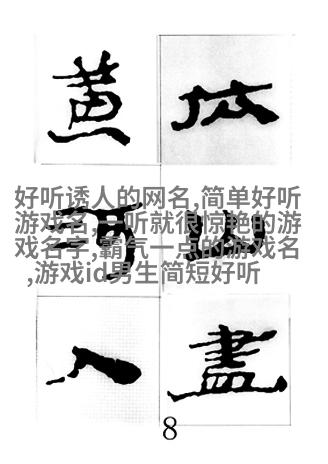 依山盡
黃河入
好听诱人的网名,简单好听
游戏名,一听就很惊艳的游
戏名字,霸气一点的游戏名
,游戏id男生简短好听
8